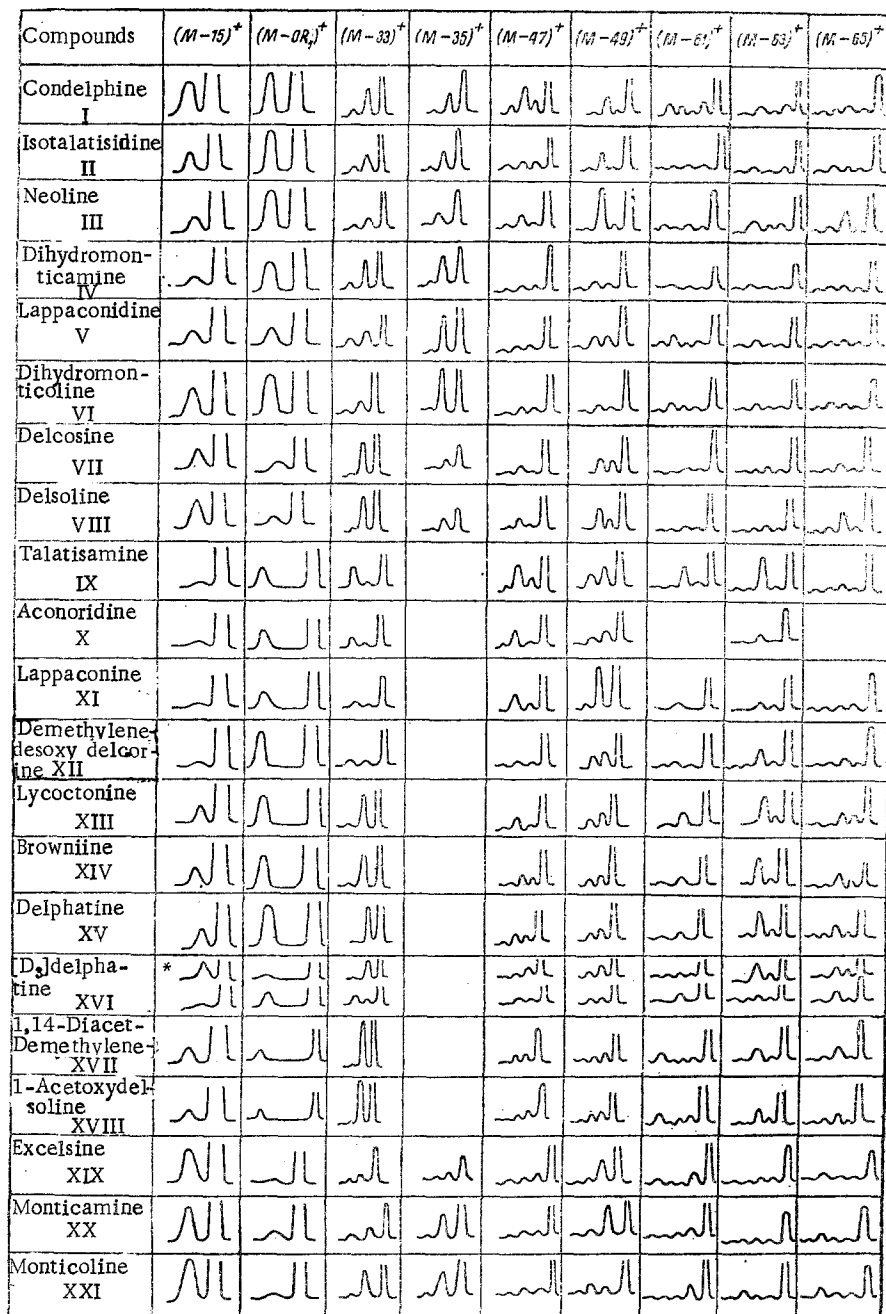 Compounds (M-15)⁺ (M-OR₁)⁺ (M-33)⁺ (M-35)⁺ (M-47)⁺ (M-49)⁺ (M-61)⁺ (M-63)⁺ (M-65)⁺
Condelphine
I
Isotalatisidine
II
Neoline
III
Dihydromon-
ticamine
IV
Lappaconidine
V
Dihydromon-
ticoline
VI
Delcosine
VII
Delsoline
VIII
Talatisamine
IX
Aconoridine
X
Lappaconine
XI
Demethylene-
desoxy delcor-
ine XII
Lycoctonine
XIII
Browniine
XIV
Delphatine
XV
[D₃]delpha- *
tine
XVI
1,14-Diacet-
Demethylene-
XVII
1-Acetoxydel-
soline
XVIII
Excelsine
XIX
Monticamine
XX
Monticoline
XXI